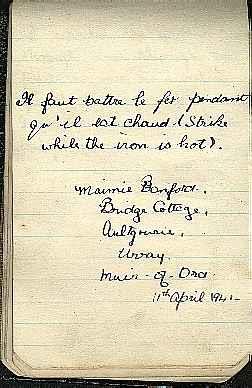 Il faut battre le fer pendant
qu'il est chaud. (Strike
while the iron is hot).
Maimie Banford.
Bridge Cottage,
Aultgowrie,
Urray
Muir-of-Ord
11th April 1941-